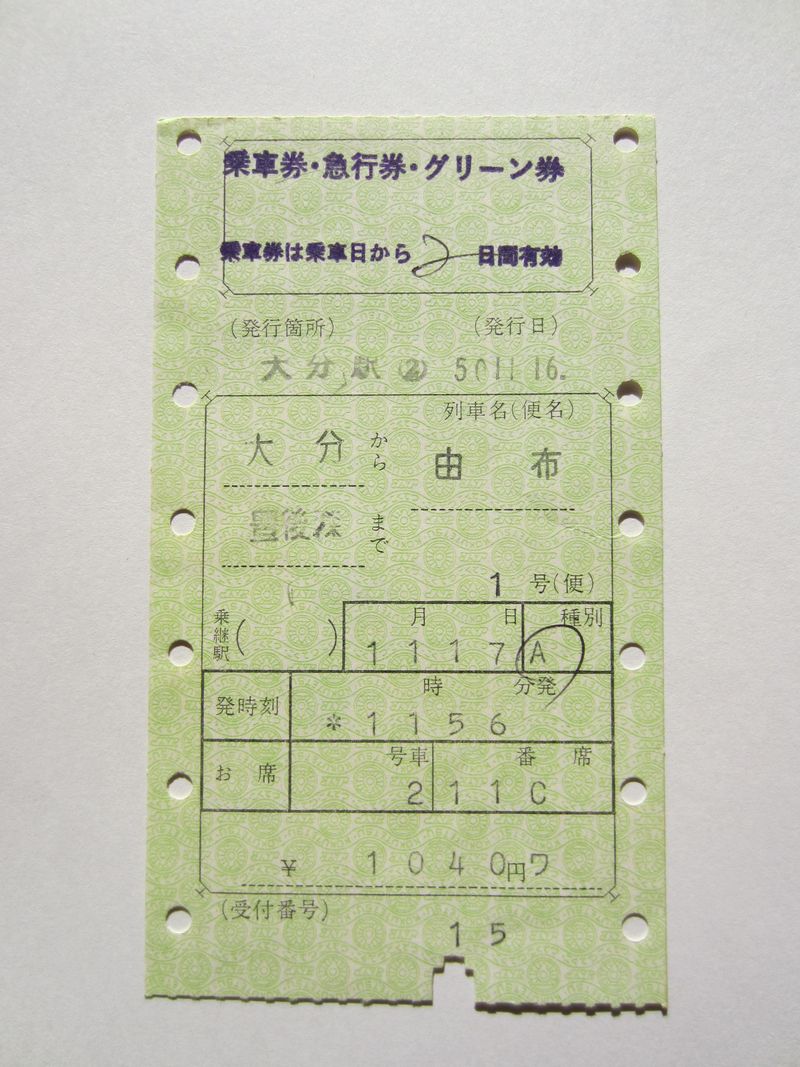 乗車券・急行券・グリーン券
乗車券は乗車日から2日間有効
(発行箇所) (発行日)
大分駅② 50.11.16.
列車名(便名)
大分から 由布
豊後森まで
1号(便)
乗継駅( ) 月 日 種別
1117 A
発時刻 時 分発
*1156
お席 号車 番 席
2 11C
¥ 1040円ワ
(受付番号)
15